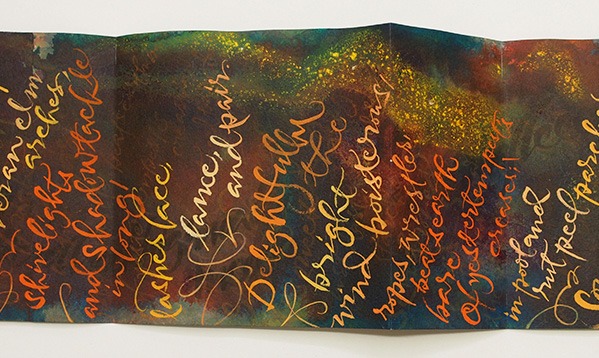 eran elm
arches,
shivelights
and shadowtackle
in long
lashes lace,
lance,
and pair.
Delightfully
the
bright
wind boisterous
ropes, wrestles,
beats earth
bare
Of yestertempest's
creases;
in pool and
rut peel parches